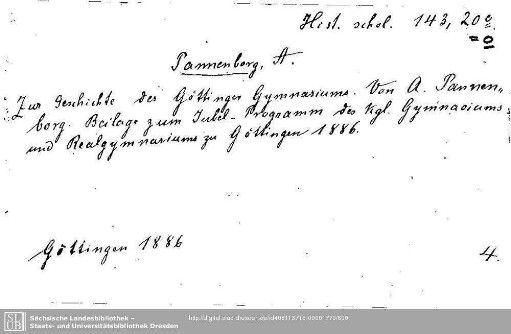 Hist. schol. 143, 20 e
= 01
Pannenborg, A.
Zur Geschichte des Göttinger Gymnasiums. Von A. Pannen-
borg. Beilage zum Jubel-Programm des Kgl. Gymnasiums
und Realgymnasiums zu Göttingen 1886.
Göttingen 1886
4.
SLUB
Sächsische Landesbibliothek –
Staats- und Universitätsbibliothek Dresden